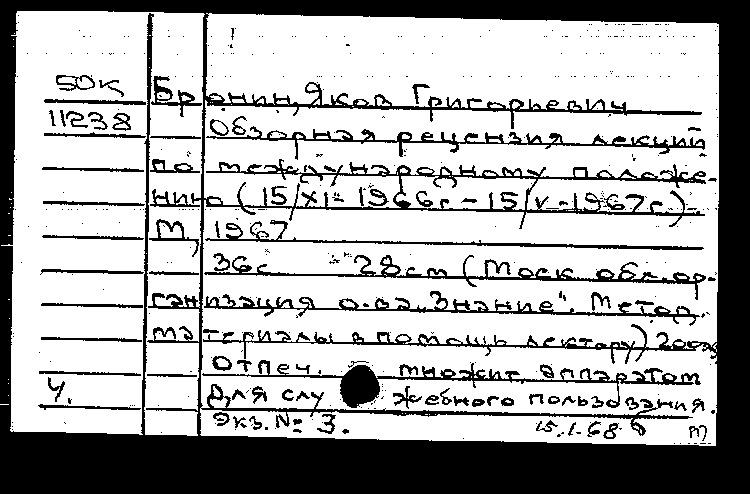 50К Бронин, Яков Григорьевич
11238 Обзорная рецензия лекций
по международному положе-
нию (15/XI-1966г.-15/V-1967г.)-
М, 1967.
36с 28см (Моск обл. ор-
ганизация о-ва „Знание“. Метод.
материалы в помощь лектору) 200э
Отпеч. множит. аппаратом
Ч. Для служебного пользования.
Экз. № 3. 15.1.68